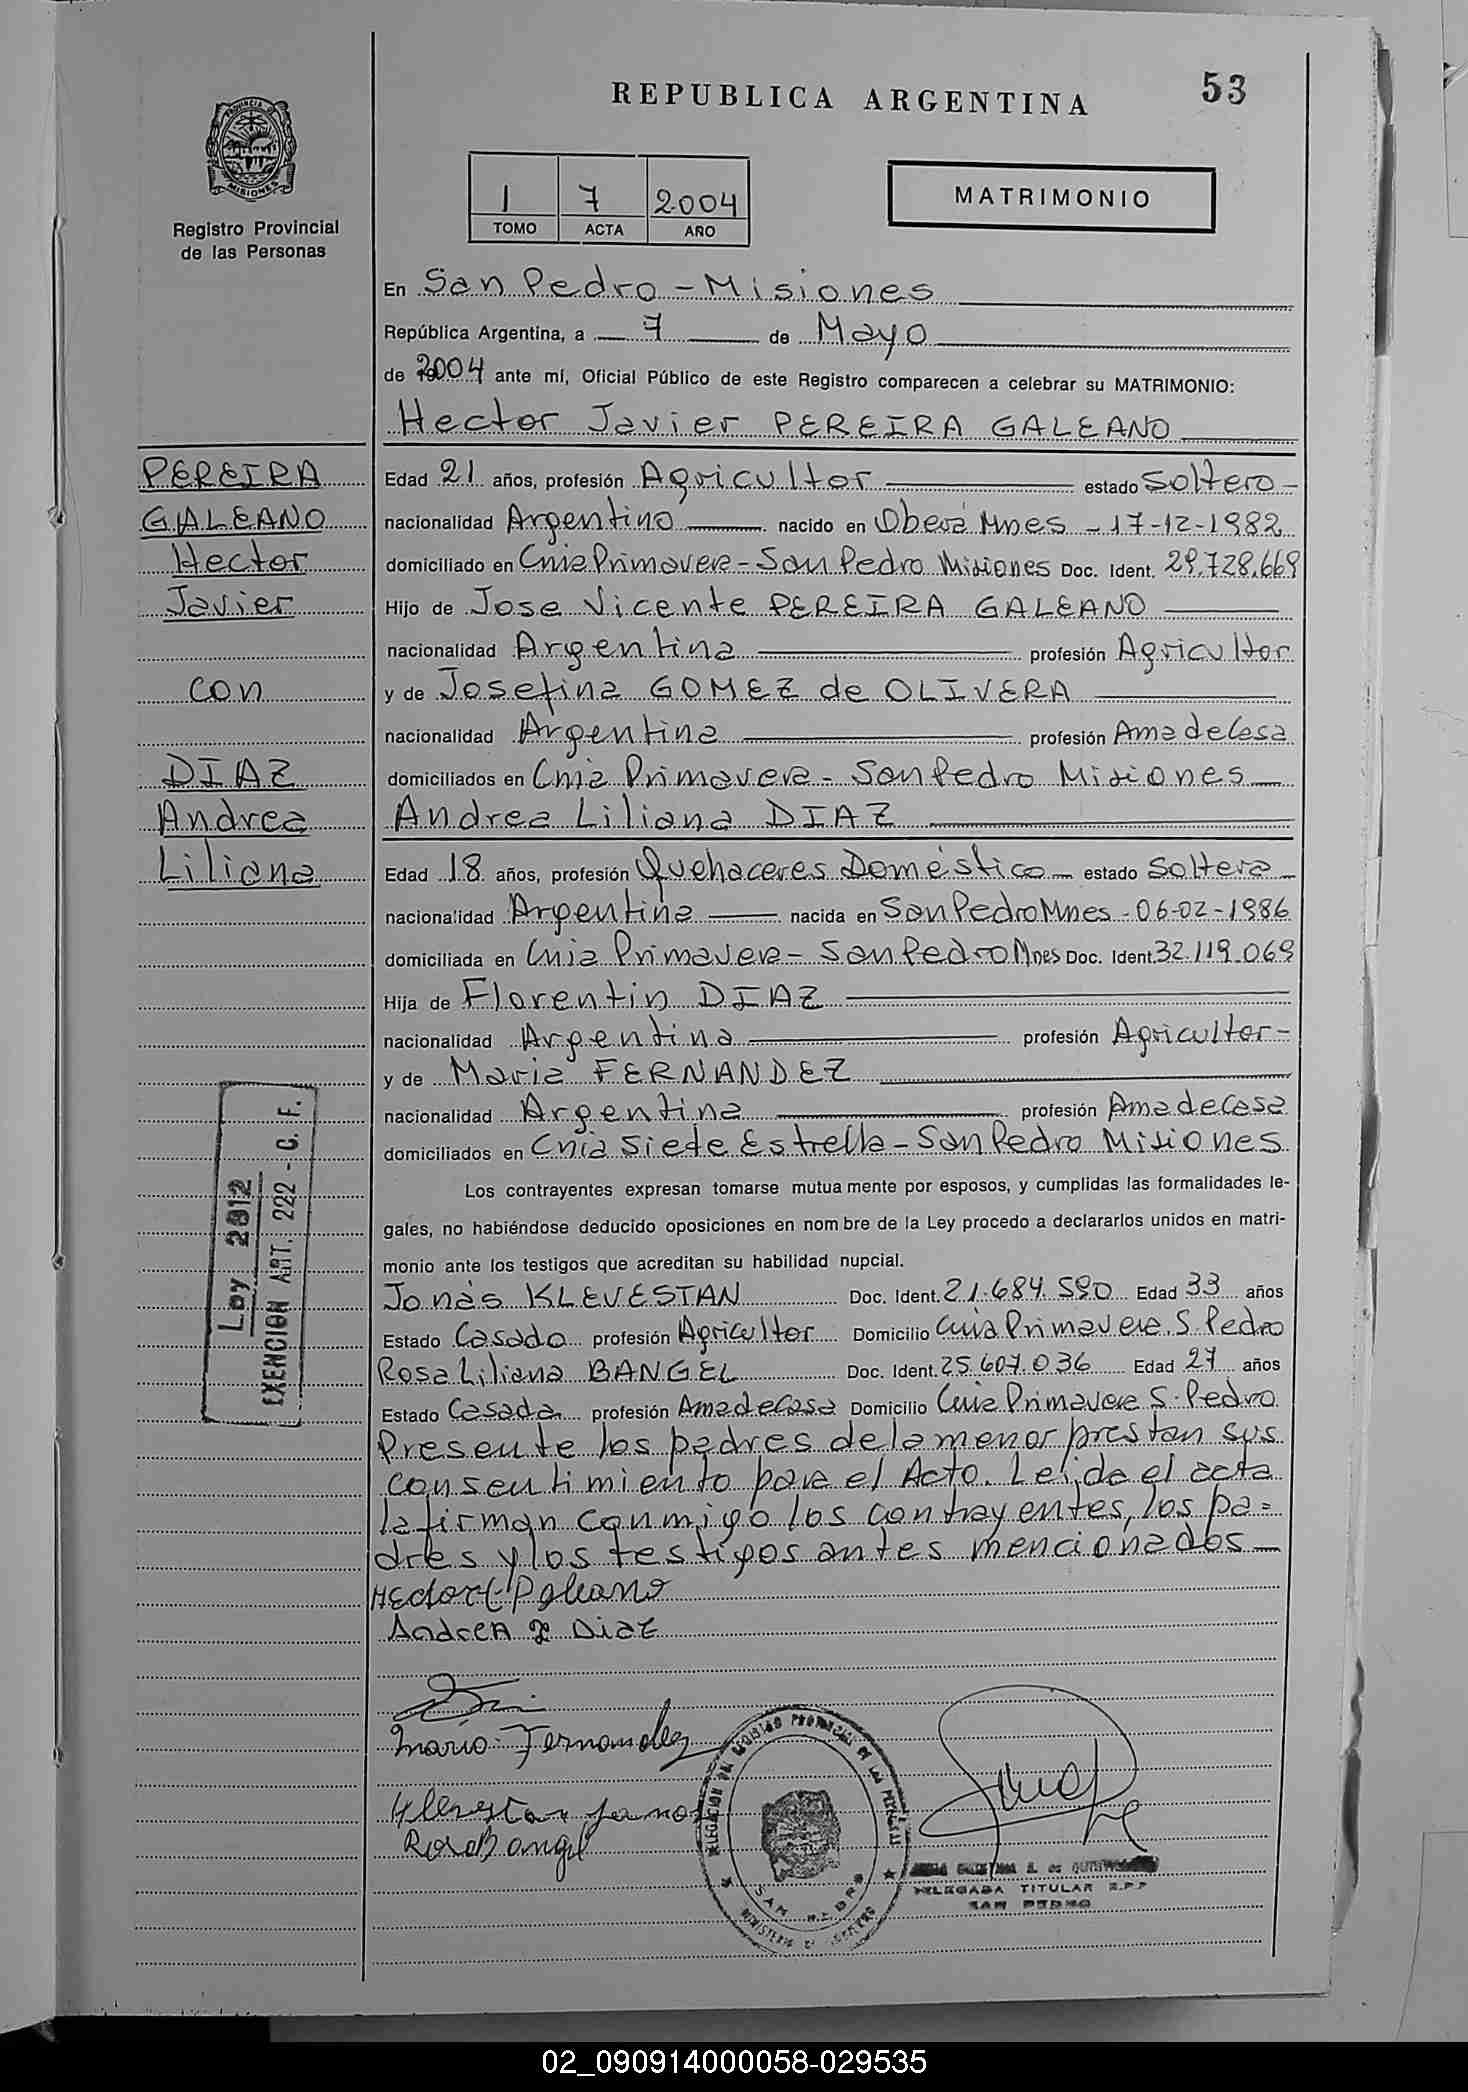 REPUBLICA ARGENTINA
53
PROVINCIA DE
MISIONES
Registro Provincial
de las Personas
1 7 2004
TOMO ACTA AÑO
MATRIMONIO
En San Pedro - Misiones
República Argentina, a 7 de Mayo
de 2004 ante mí, Oficial Público de este Registro comparecen a celebrar su MATRIMONIO:
Hector Javier PEREIRA GALEANO
PEREIRA
GALEANO
Hector
Javier
con
DIAZ
Andrea
Liliana
Edad 21 años, profesión Agricultor estado Soltero -
nacionalidad Argentino nacido en Oberá Mnes - 17-12-1982
domiciliado en Cnia Primavera - San Pedro Misiones Doc. Ident. 29.728.669
Hijo de Jose Vicente PEREIRA GALEANO
nacionalidad Argentina profesión Agricultor
y de Josefina GOMEZ de OLIVERA
nacionalidad Argentina profesión Ama de Casa
domiciliados en Cnia Primavera - San Pedro Misiones
Andrea Liliana DIAZ
Edad 18 años, profesión Quehaceres Doméstico estado Soltera
nacionalidad Argentina nacida en San Pedro Mnes - 06-02-1986
domiciliada en Cnia Primavera - San Pedro Mnes Doc. Ident. 32.119.069
Hija de Florentin DIAZ
nacionalidad Argentina profesión Agricultor -
y de Maria FERNANDEZ
nacionalidad Argentina profesión Ama de Casa
domiciliados en Cnia Siete Estrella - San Pedro Misiones
Los contrayentes expresan tomarse mutua mente por esposos, y cumplidas las formalidades le-
gales, no habiéndose deducido oposiciones en nom bre de la Ley procedo a declararlos unidos en matri-
monio ante los testigos que acreditan su habilidad nupcial.
Jonás KLEVESTAN Doc. Ident. 21.684.590 Edad 33 años
Estado Casado profesión Agricultor Domicilio Cnia Primavera. S. Pedro
Rosa Liliana BANGEL Doc. Ident. 25.607.036 Edad 27 años
Estado Casada profesión Ama de Casa Domicilio Cnia Primavera S. Pedro
Presente los padres de la menor prestan sus
consentimiento para el Acto. Leida el acta
la firman conmigo los contrayentes, los pa=
dres y los testigos antes mencionados
Ley 2912
EXENCION ART. 222 - C. F.
Hector Galeano
Andrea L Diaz
Maria Fernandez
Klevestan Jonas
Rosa Bangel
DELEGACION DEL REGISTRO PROVINCIAL DE LAS PERSONAS
SAN PEDRO
MINISTERIO DE GOBIERNO
DELEGADA TITULAR R.P.P
SAN PEDRO
02_090914000058-029535